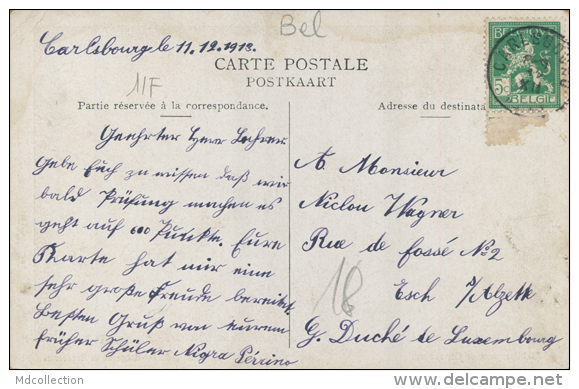 Bel
Carlsbourg le 11.12.1913.
CARTE POSTALE
POSTKAART
11F
Partie réservée à la correspondance.
Adresse du destinata
BELGIE
5c
Geehrter Herr Lehrer
Gebe Euch zu wissen daß wir
bald Prüfung machen es
geht auf 600 Punkte. Eure
Karte hat mir eine
sehr große Freude bereitet.
Besten Gruß von Eurem
früher Schüler Nigra
A. Monsieur
Niclou Wagner
Rue de fossé No 2
Esch s/Alzett
G. Duché de Luxembourg
18
Mdcollection
delcampe.net